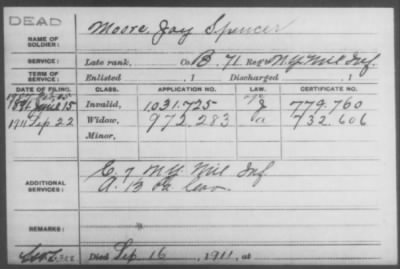 DEAD
NAME OF SOLDIER: Moore, Jay Spencer
SERVICE: Late rank, Co. B. 71 Reg't N.Y. Mil Inf.
TERM OF SERVICE: Enlisted , 1 Discharged , 1
DATE OF FILING. CLASS. APPLICATION NO. LAW. CERTIFICATE NO.
1891 June 15 Invalid, 1.031.725 779.760
1911 Sep 22 Widow, 972.283 732.606
Minor,
ADDITIONAL SERVICES: C. 7 N.Y. Mil Inf
A. 13 Pa Cav.
REMARKS:
Died Sep 16, 1911, at